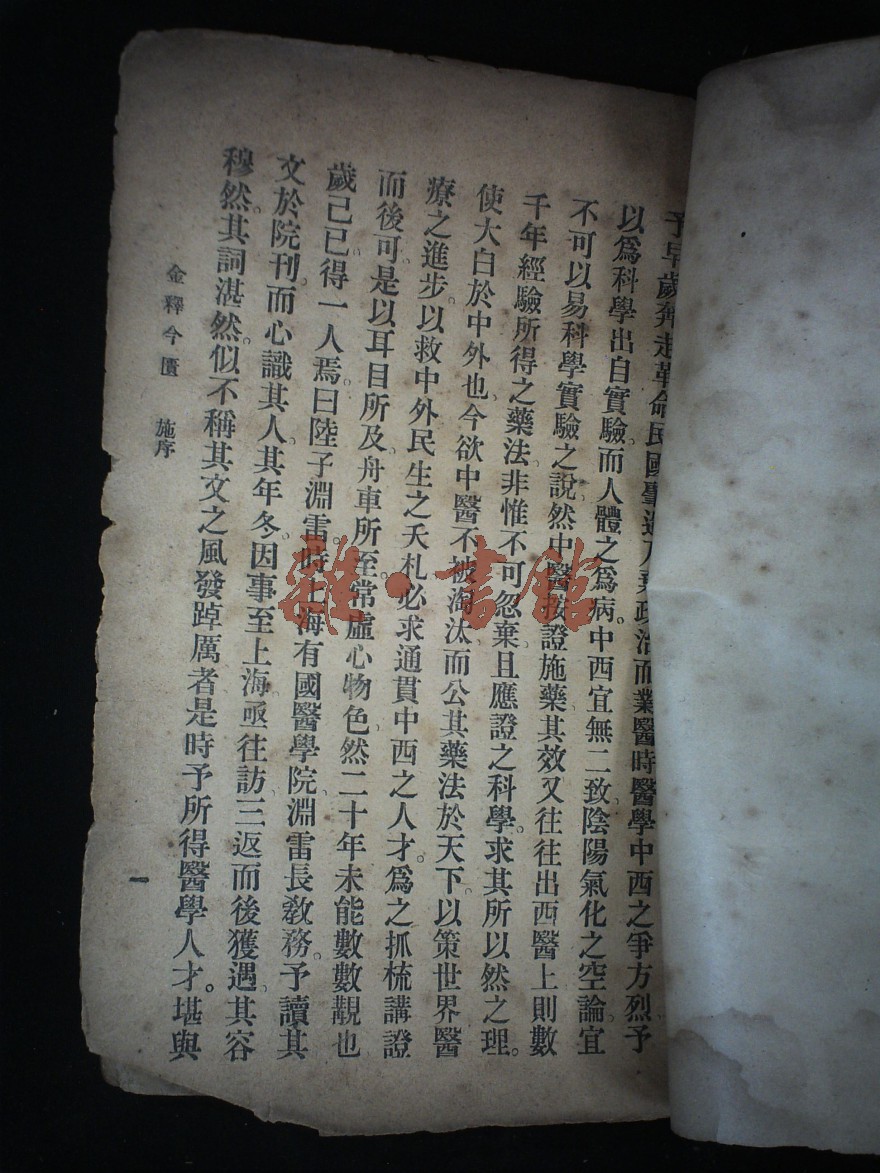 予早歲奔走革命民國肇造乃棄政治而業醫時醫學中西之爭方烈。予
以爲科學出自實驗。而人體之爲病。中西宜無二致。陰陽氣化之空論。宜
不可以易科學實驗之說。然中醫按證施藥。其效又往往出西醫上。則數
千年經驗所得之藥法。非惟不可忽棄。且應證之科學。求其所以然之理。
使大白於中外也。今欲中醫不被淘汰。而公其藥法於天下。以策世界醫
療之進步。以救中外民生之夭札。必求通貫中西之人才。爲之抓梳講證
而後可。是以耳目所及。舟車所至。常虛心物色。然二十年未能數數覯也
歲己巳得一人焉。曰陸子淵雷。時上海有國醫學院。淵雷長敎務。予讀其
文於院刊。而心識其人。其年冬。因事至上海。亟往訪。三返而後獲遇。其容
穆然。其詞湛然。似不稱其文之風發踔厲者。是時予所得醫學人才。堪與
金釋今匱 施序
一
雜·書館